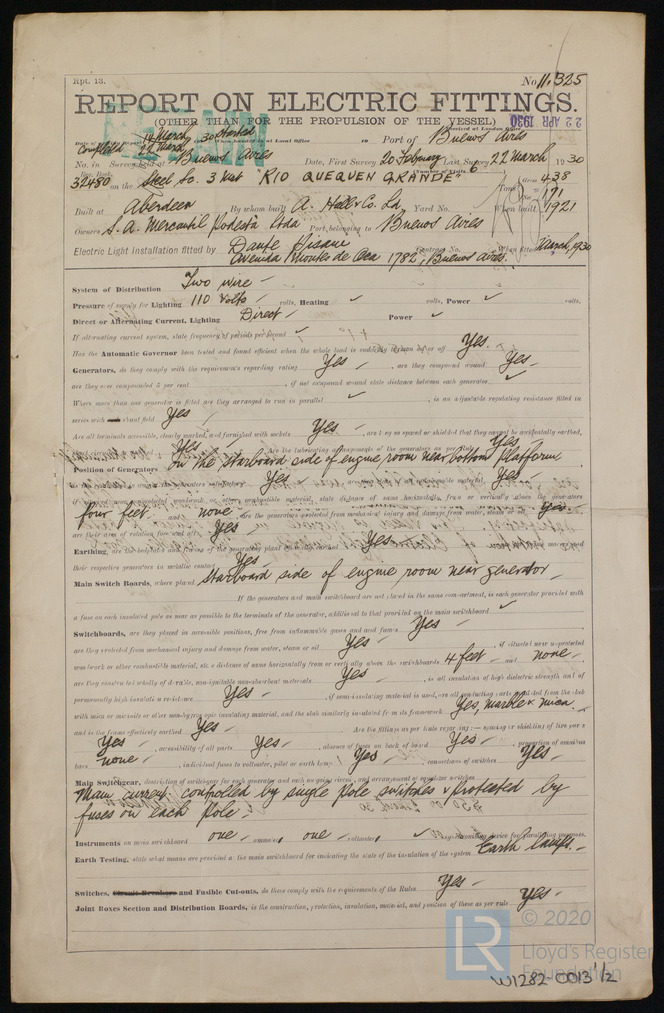 Rpt. 13.
No 11,325
REPORT ON ELECTRIC FITTINGS.
(OTHER THAN FOR THE PROPULSION OF THE VESSEL)
22 APR 1930
Completed 22 March 1930 Port of Buenos Aires
No. in Survey held at Buenos Aires Date, First Survey 20 February Last Survey 22 March 1930
32480 on the Steel Sc. 3 mst "RIO QUEQUEN GRANDE" Tons Gross 438 Net 171
Built at Aberdeen By whom built A. Hall & Co. Ld. Yard No. When built 1921
Owners S. A. Mercantil Podesta Ltda Port belonging to Buenos Aires
Electric Light Installation fitted by Dante Pisani Contract No. When fitted March, 1930
Avenida Montes de Oca 1782, Buenos Aires.
System of Distribution Two wire
Pressure of supply for Lighting 110 Volts volts, Heating ✓ volts, Power ✓ volts,
Direct or Alternating Current, Lighting Direct Power ✓
If alternating current, state frequency of periods per second ✓
Has the Automatic Governor been tested and found efficient when the whole load is suddenly thrown on or off Yes.
Generators, do they comply with the requirements regarding rating Yes, are they compound wound Yes
are they over compounded 5 per cent. , if not compound wound state distance between each generator ✓
Where more than one generator is fitted are they arranged to run in parallel ✓ , is an adjustable regulating resistance fitted in
series with shunt field Yes
Are all terminals accessible, clearly marked, and furnished with sockets Yes, are they so spaced or shielded that they cannot be accidentally earthed,
Yes Are the lubricating arrangements of the generators as per Rule Yes
Position of Generators On the starboard side of engine room near bottom platform
Yes Yes
four feet and none are the generators protected from mechanical injury and damage from water, steam or oil Yes
are their axes of rotation fore and aft Yes
Earthing, Yes
their respective generators in metallic contact Yes
Main Switch Boards, where placed Starboard side of engine room near generator
If the generators and main switchboard are not placed in the same compartment, is each generator provided with
a fuse on each insulated pole as near as possible to the terminals of the generator, additional to that provided on the main switchboard ✓
Switchboards, are they placed in accessible positions, free from inflammable gases and acid fumes Yes
are they protected from mechanical injury and damage from water, steam or oil Yes, if situated near unprotected
woodwork or other combustible material, state distance of same horizontally from or vertically above the switchboards 4 feet and none
are they constructed wholly of durable, non-ignitable non-absorbent materials Yes, is all insulation of high dielectric strength and of
permanently high insulation resistance Yes, if semi-insulating material is used, are all conducting parts insulated from the slab
with mica or micanite or other non-hygroscopic insulating material, and the slab similarly insulated from its framework Yes, marble & mica
and is the frame effectively earthed Yes Are the fittings as per Rule regarding:— spacing or shielding of live parts
Yes, accessibility of all parts Yes, absence of fuses on back of board Yes, proportion of omnibus
bars none, individual fuses to voltmeter, pilot or earth lamp Yes, connections of switches Yes
Main Switchgear, description of switchgear for each generator and each outgoing circuit, and arrangement of equalizer switches
Main current controlled by single pole switches & protected by
fuses on each pole.
Instruments on main switchboard one ammeters one voltmeters ✓ synchronising device for paralleling purposes.
Earth Testing, state what means are provided at the main switchboard for indicating the state of the insulation of the system Earth lamps.
Switches, Circuit Breakers and Fusible Cut-outs, do these comply with the requirements of the Rules Yes
Joint Boxes Section and Distribution Boards, is the construction, protection, insulation, material, and position of these as per rule Yes
© 2020
LR
Lloyd's Register
Foundation
W1282-0013 1/2